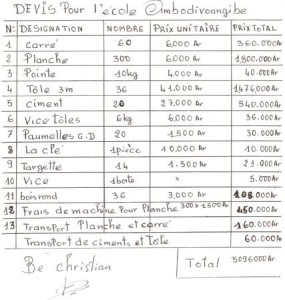 DEVIS Pour l'école @mbodivoangibe
N: DESIGNATION NOMBRE PRIX UNITAIRE PRIX TOTAL
1 Carré 60 6.000 Ar 360.000Ar
2 Planche 300 6.000 Ar 1,800.000Ar
3 Pointe 10kg 4.000 Ar 40.000Ar
4 Tôle 3m 36 41.000 Ar 1476,000Ar
5 ciment 20 27.000 Ar 540.000Ar
6 Vice tôles 6kg 6.000 Ar 36.000Ar
7 Paumelles G.D 20 1.500 Ar 30.000Ar
8 La clé 1pièce 10.000 Ar 10.000Ar
9 Targette 14 1.500 Ar 21.000Ar
10 Vice 1boite x 5.000Ar
11 bois rond 36 3,000 Ar 108.000Ar
12 Frais de machine Pour Planche 300 x 1500 Ar 450.000Ar
13 Transport Planche et carré 160.000Ar
Transport de ciments et tôle 60.000Ar
Be christian
Total 5096000Ar